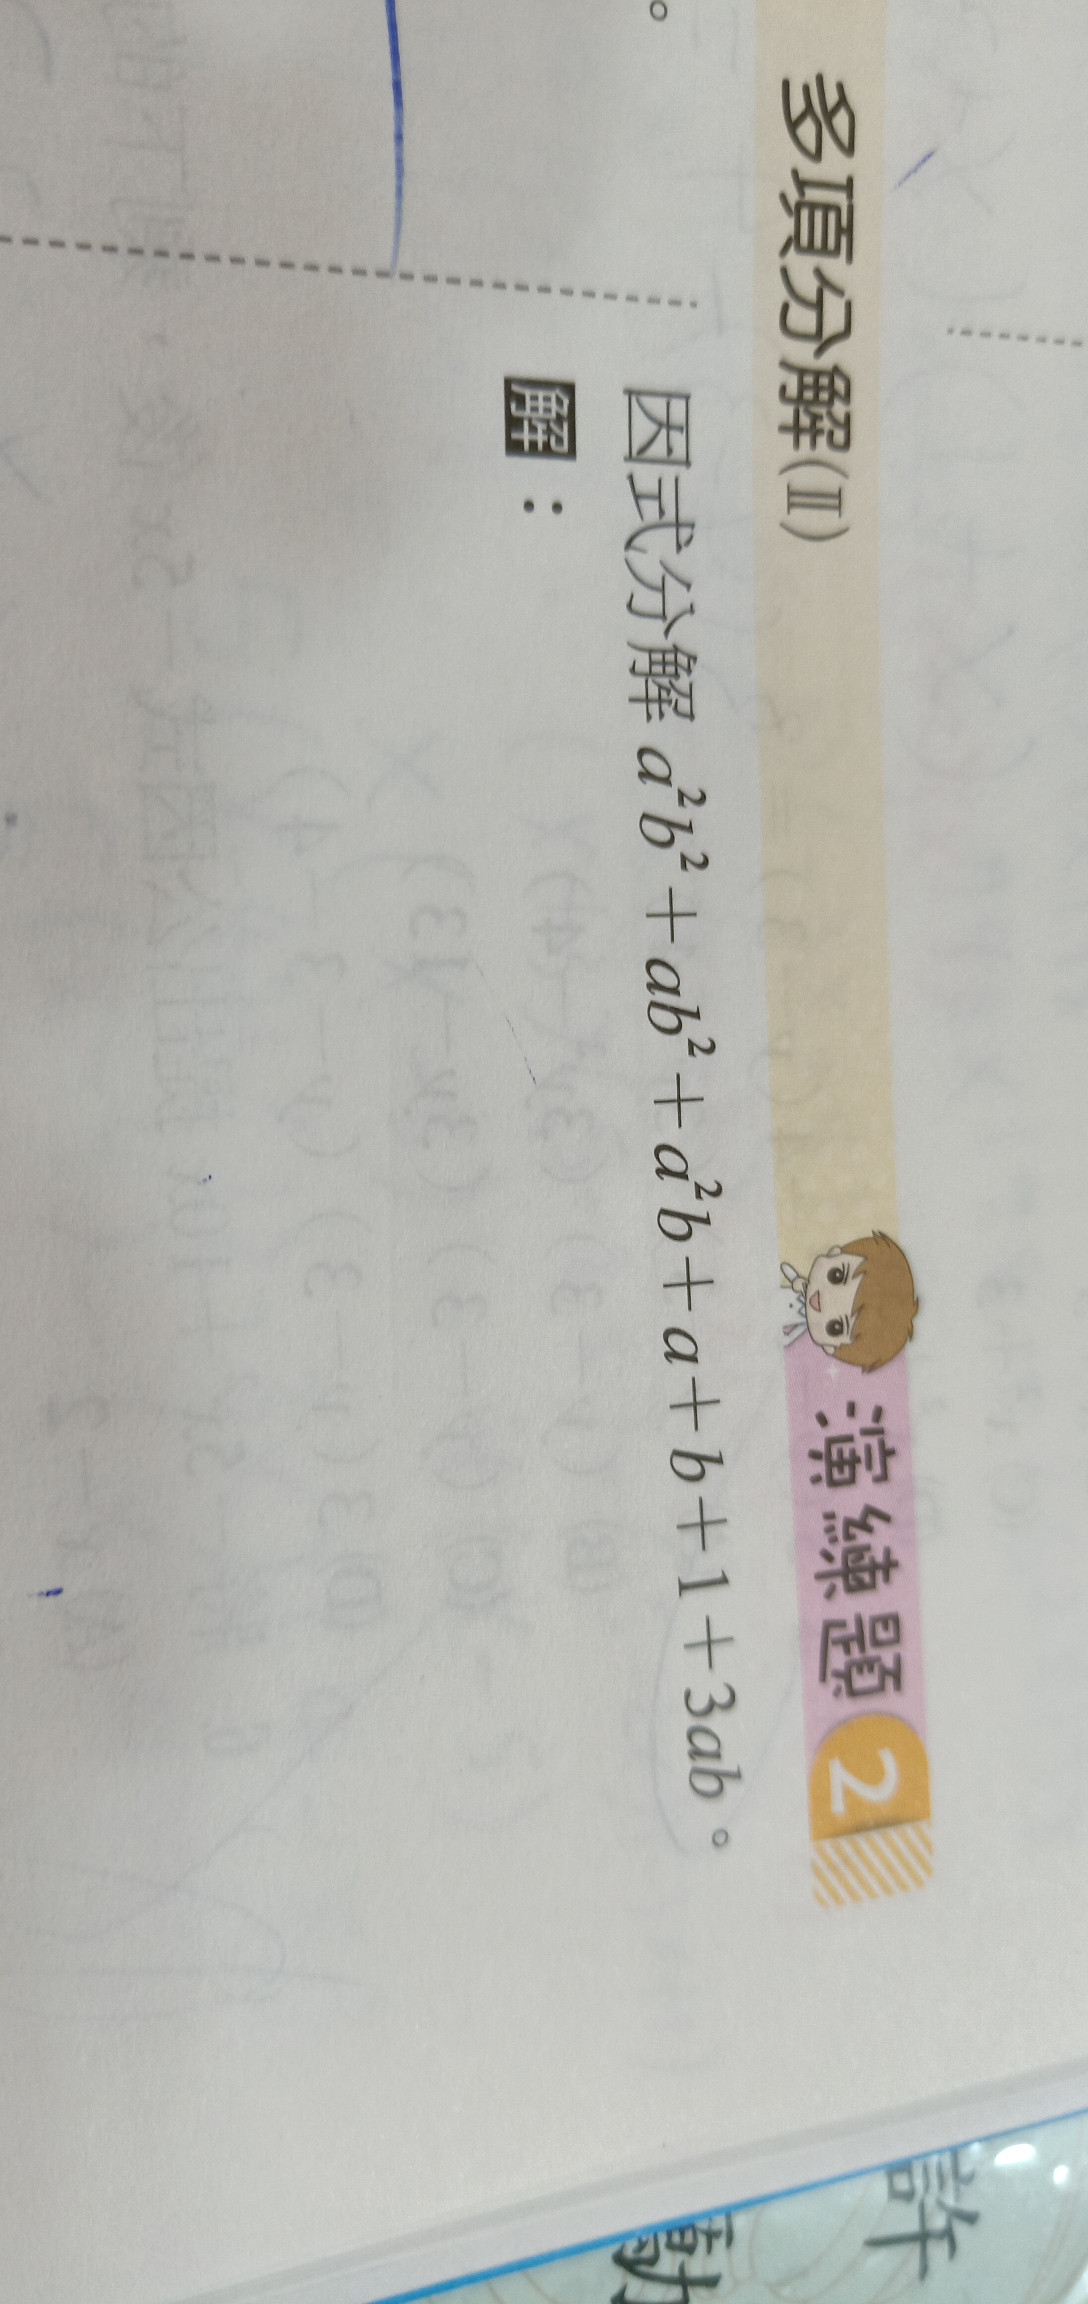 多項分解(Ⅱ)
演練題 2
因式分解 a²b²+ab²+a²b+a+b+1+3ab。
解：